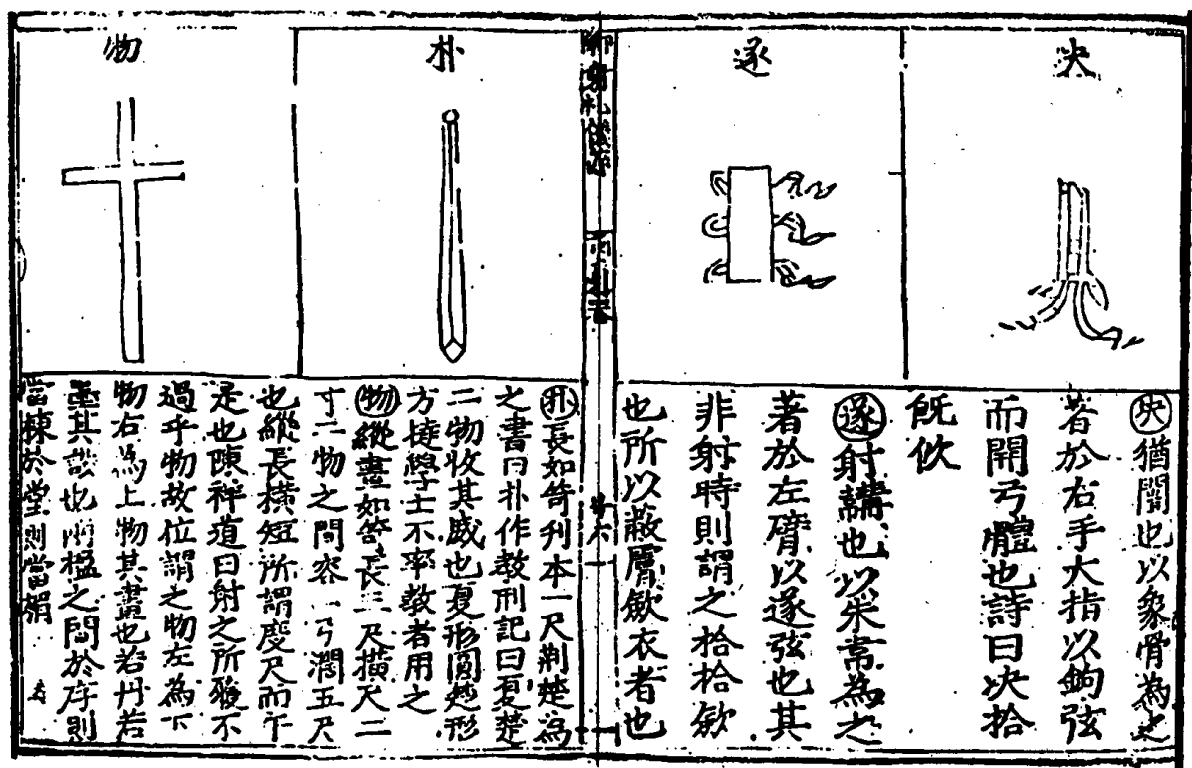 決
遂
朴
物
決猶闓也以象骨為之
著於右手大指以鉤弦
而開弓體也詩曰决拾
旣佽
遂射韝也以朱韋為之
著於左臂以遂弦也其
非射時則謂之拾拾歛
也所以蔽膚歛衣者也
朴長如笴刋本一尺荆楚為
之書曰朴作教刑記曰夏楚
二物收其威也夏形圓楚形
方撻學士不率教者用之
物縱畫如笴長三尺橫尺二
寸二物之間容一弓濶五尺
也縱長橫短所謂度尺而午
是也陳祥道曰射之所履不
過乎物故位謂之物左為下
物右為上物其畫也若丹若
墨其設也兩楹之間於序則
當棟於堂則當楣